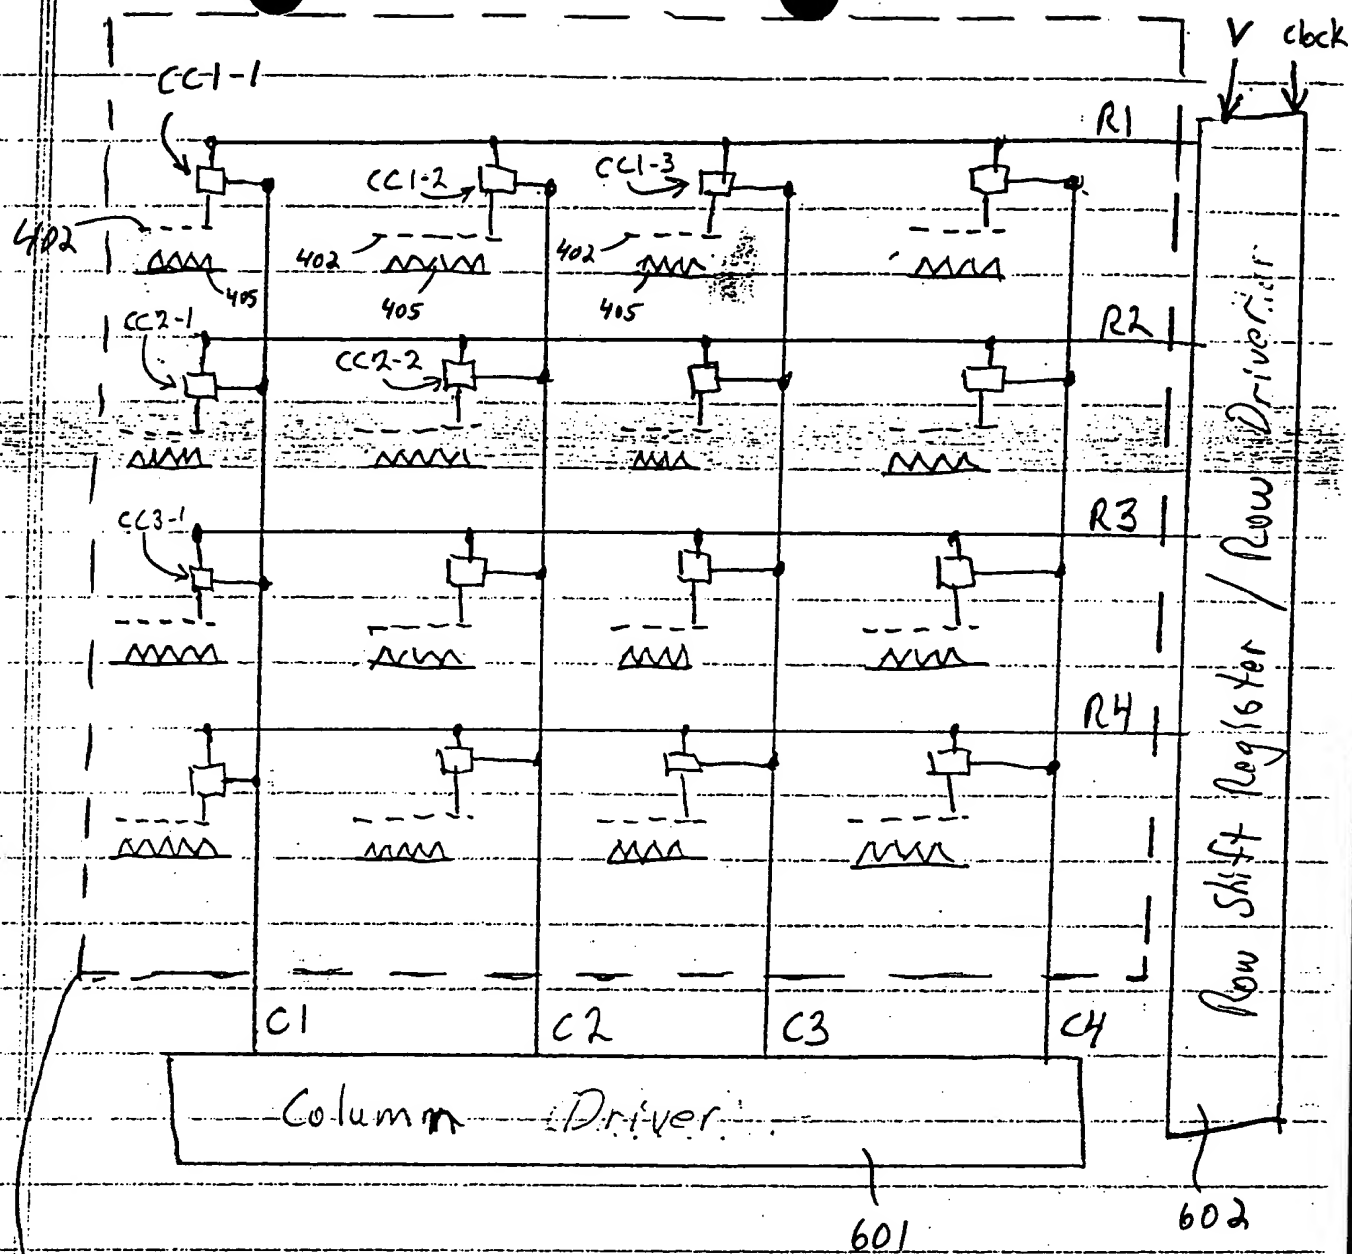 V clock
CC1-1
R1
CC1-2
CC1-3
402
402
402
405
405
405
CC2-1
R2
CC2-2
CC3-1
R3
R4
Row Shift Register / Row Driver
C1 C2 C3 C4
Column Driver
601
602